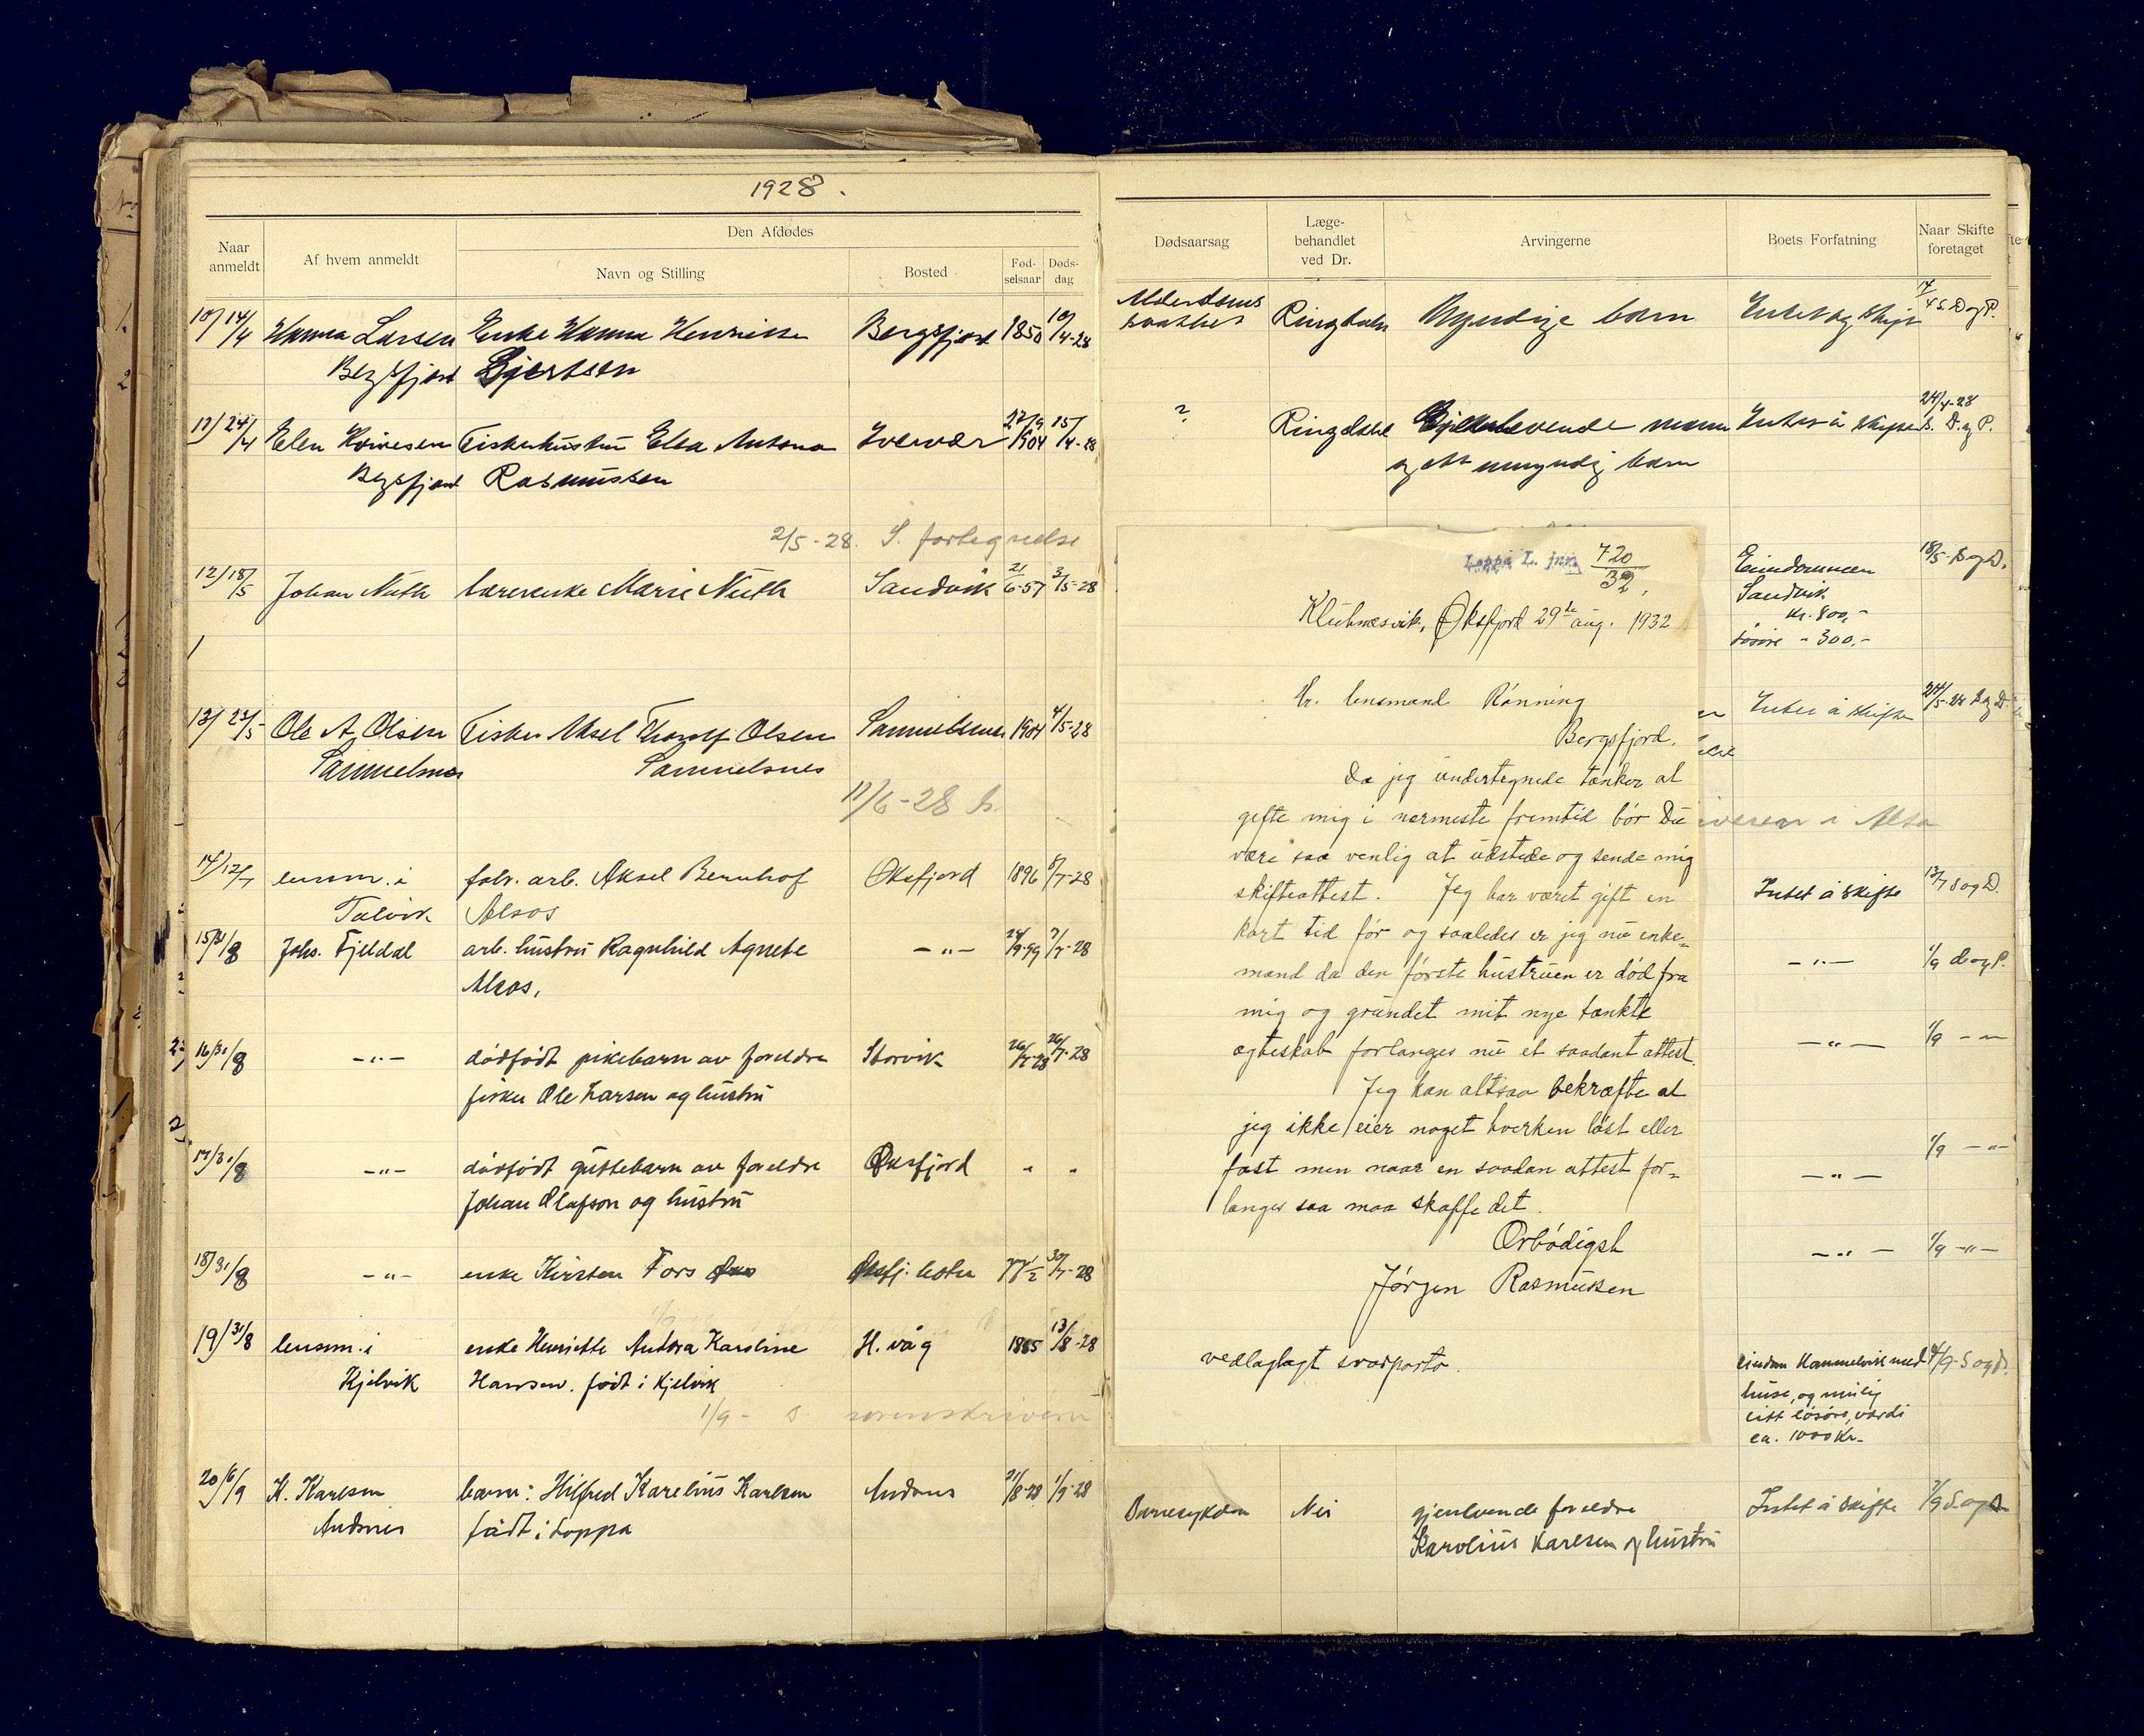 1928.
Naar anmeldt
Af hvem anmeldt
Den Afdødes
Navn og Stilling
Bosted
Fød-selsaar
Døds-dag
10/ 14/4 Hanna Larsen Enke Hanna Henrikke Bergsfjord 1850 10/4-28
Bergsfjord Gjertsen
11/ 24/4 Elen Iversen Fiskerhustru Elea Antona Iversvær 27/9 1904 15/4-28
Bergsfjord Rasmussen
2/5-28. S. fortegnelse
12/ 18/5 Johan Nuth lærerenke Marie Nuth Sandvik 21/6-57 3/5-28
13/ 23/5 Ole A. Olsen Fisker Aksel Thoralf Olsen Samuelsnes 1904 4/5-28
Samuelsnes Samuelsnes
11/6-28
14/ 12/7 lensm. i fabr. arb. Aksel Bernhof Øksfjord 1896 8/7-28
Talvik Alsos
15/ 31/8 Johs. Fjeldal arb. hustru Ragnhild Agnete -"- 24/9-99 7/7-28
Alsos.
16/ 31/8 -"- dødfødt pikebarn av foreldre Storvik 26/7-28 26/7-28
fisker Ole Larsen og hustru
17/ 31/8 -"- dødfødt guttebarn av foreldre Øksfjord " "
Johan Olafson og hustru
18/ 31/8 -"- enke Kirsten Fors Øksfj. botn 77 1/2 30/7-28
19/ 31/8 lensm. i enke Henriette Antora Karoline H. våg 1865 13/8-28
Kjelvik Hansen. født i Kjelvik
1/9 - S. sorenskriveren
20/ 6/9 K. Karlsen barn: Hilfred Karelius Karlsen Andsnes 21/8-28 1/9-28
Andsnes født i Loppa
Dødsaarsag
Læge-behandlet ved Dr.
Arvingerne
Boets Forfatning
Naar Skifte foretaget
Alderdoms
svakhet Ringdahl Myndige barn Intet og skifte 14/4 S. D og P.
? Ringdahl Gjenlevende mann Intet å skifte 24/4-28 S. D. og P.
og ett umyndig barn
Eiendommen 18/5- S og D.
Sandvik
kr. 800,-
løsøre - 300.-
Intet å skifte 24/5-28 S og D.
Alta
Intet å skifte 13/7 S og D.
-"- 1/9 D og P.
-"- 1/9 -"-
-"- 1/9 -"-
-"- 1/9 -"-
eiendom Hammelvik med
huse, og mulig
litt løsøre, værdi
ca. 1000 kr.-
Barnesykdom Nei gjenlevende foreldre Intet å skifte 7/9 S. og D.
Karolius Karlsen og hustru
Loppa L. Jnr. 720/32.
Klubnæsvik, Øksfjord 29de aug. 1932
Hr. lensmand Rønning
Bergsfjord.
Da jeg undertegnede tænker at
gifte mig i nærmeste fremtid bør De
være saa venlig at utstede og sende mig
skifteattest. Jeg har været gift en
kort tid før og saaledes er jeg nu enke=
mand da den første hustruen er død fra
mig og grundet mit nye tænkte
ægteskab forlanges nu et saadant attest.
Jeg kan altsaa bekræfte at
jeg ikke eier noget hverken løst eller
fast men naar en saadan attest for=
langes saa maa skaffe det.
Ørbødigst
Jørgen Rasmussen
vedlaglagt svarporto.